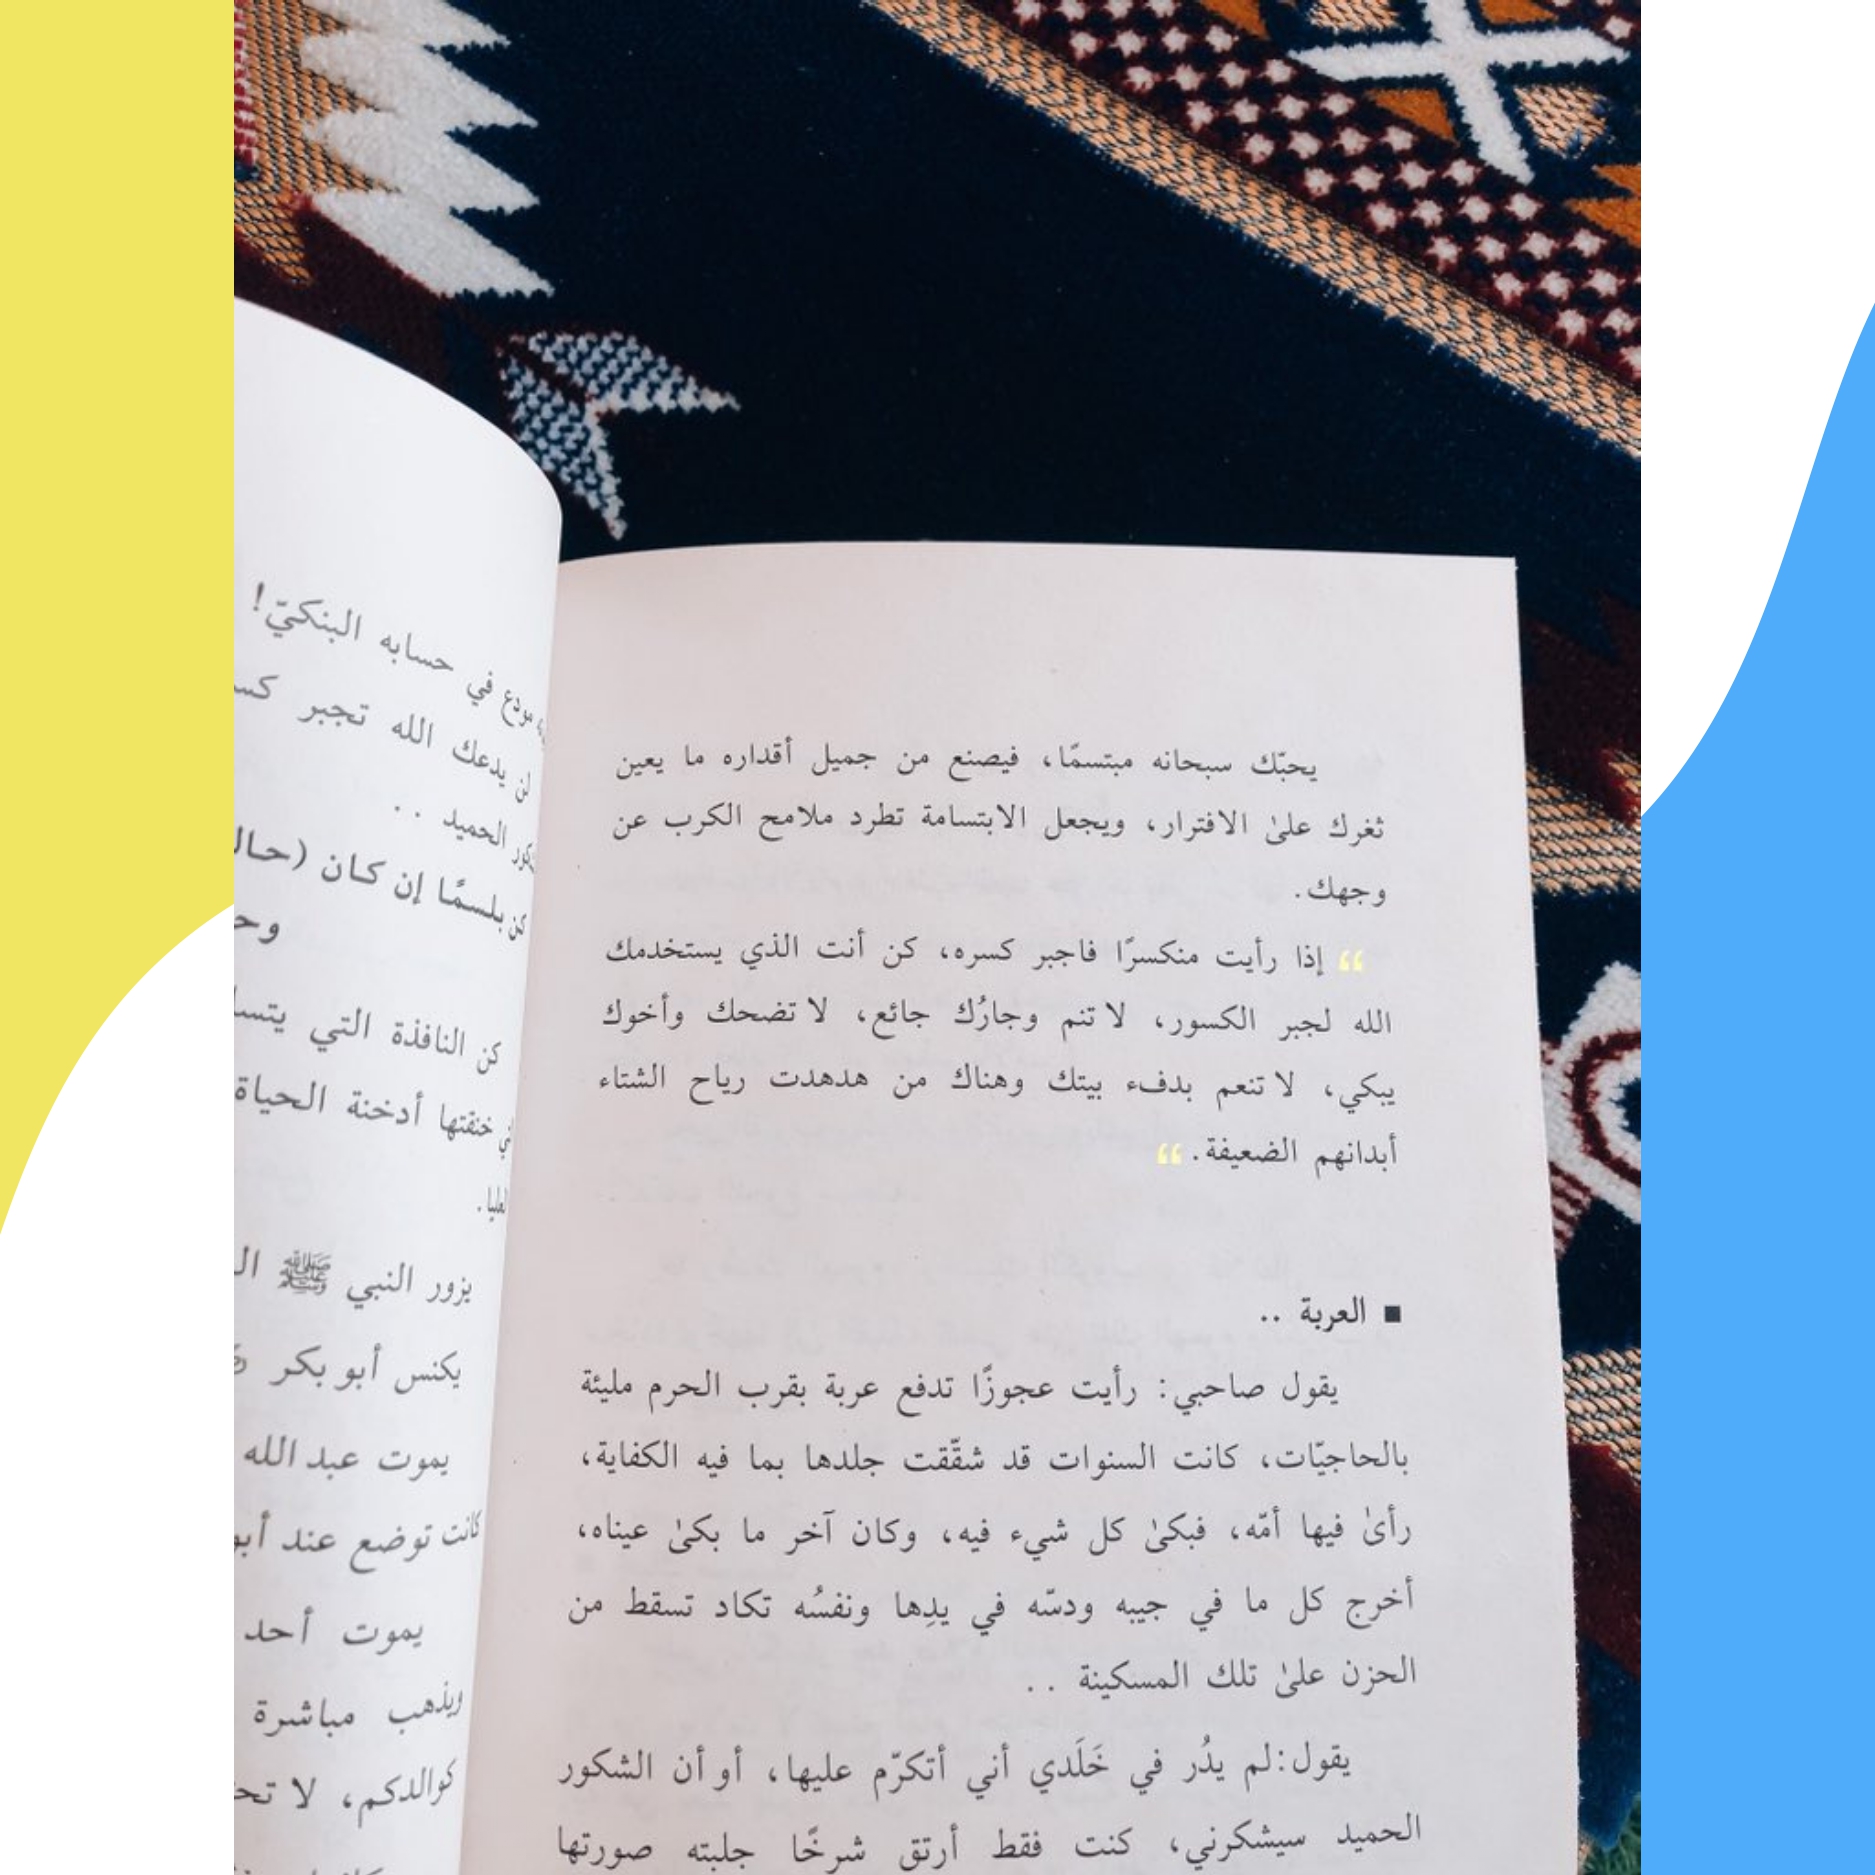 يحبّك سبحانه مبتسمًا، فيصنع من جميل أقداره ما يعين
ثغرك علىٰ الافترار، ويجعل الابتسامة تطرد ملامح الكرب عن
وجهك.
“ إذا رأيت منكسرًا فاجبر كسره، كن أنت الذي يستخدمك
الله لجبر الكسور، لا تنم وجارُك جائع، لا تضحك وأخوك
يبكي، لا تنعم بدفء بيتك وهناك من هدهدت رياح الشتاء
أبدانهم الضعيفة. “
■ العربة ..
يقول صاحبي: رأيت عجوزًا تدفع عربة بقرب الحرم مليئة
بالحاجيّات، كانت السنوات قد شقّقت جلدها بما فيه الكفاية،
رأىٰ فيها أمّه، فبكىٰ كل شيء فيه، وكان آخر ما بكىٰ عيناه،
أخرج كل ما في جيبه ودسّه في يدِها ونفسُه تكاد تسقط من
الحزن علىٰ تلك المسكينة ..
يقول:لم يدُر في خَلَدي أني أتكرّم عليها، أو أن الشكور
الحميد سيشكرني، كنت فقط أرتق شرخًا جلبته صورتها
مودع في حسابه البنكيّ!
لن يدعك الله تجبر
الحميد ..
كن بلسمًا إن كان
كن النافذة التي
خنقتها أدخنة الحياة
العليا.
يزور النبي ﷺ
يكنس أبو بكر
يموت عبد الله
كانت توضع عند
يموت أحد
ويذهب مباشرة
كوالدكم، لا